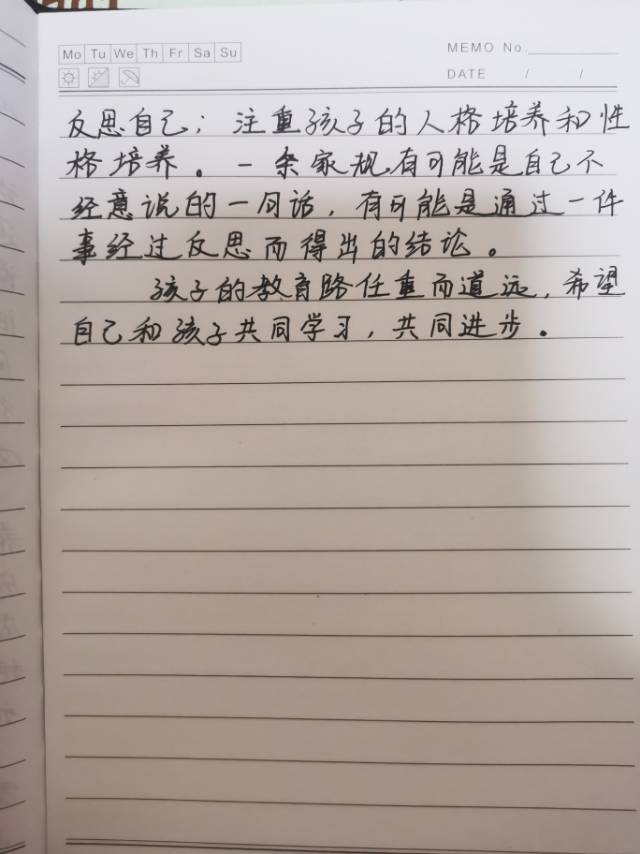 Mo Tu We Th Fr Sa Su
MEMO No.
DATE / /
反思自己；注重孩子的人格培养和性
格培养。一条家规有可能是自己不
经意说的一句话，有可能是通过一件
事经过反思而得出的结论。
孩子的教育路任重而道远，希望
自己和孩子共同学习，共同进步。